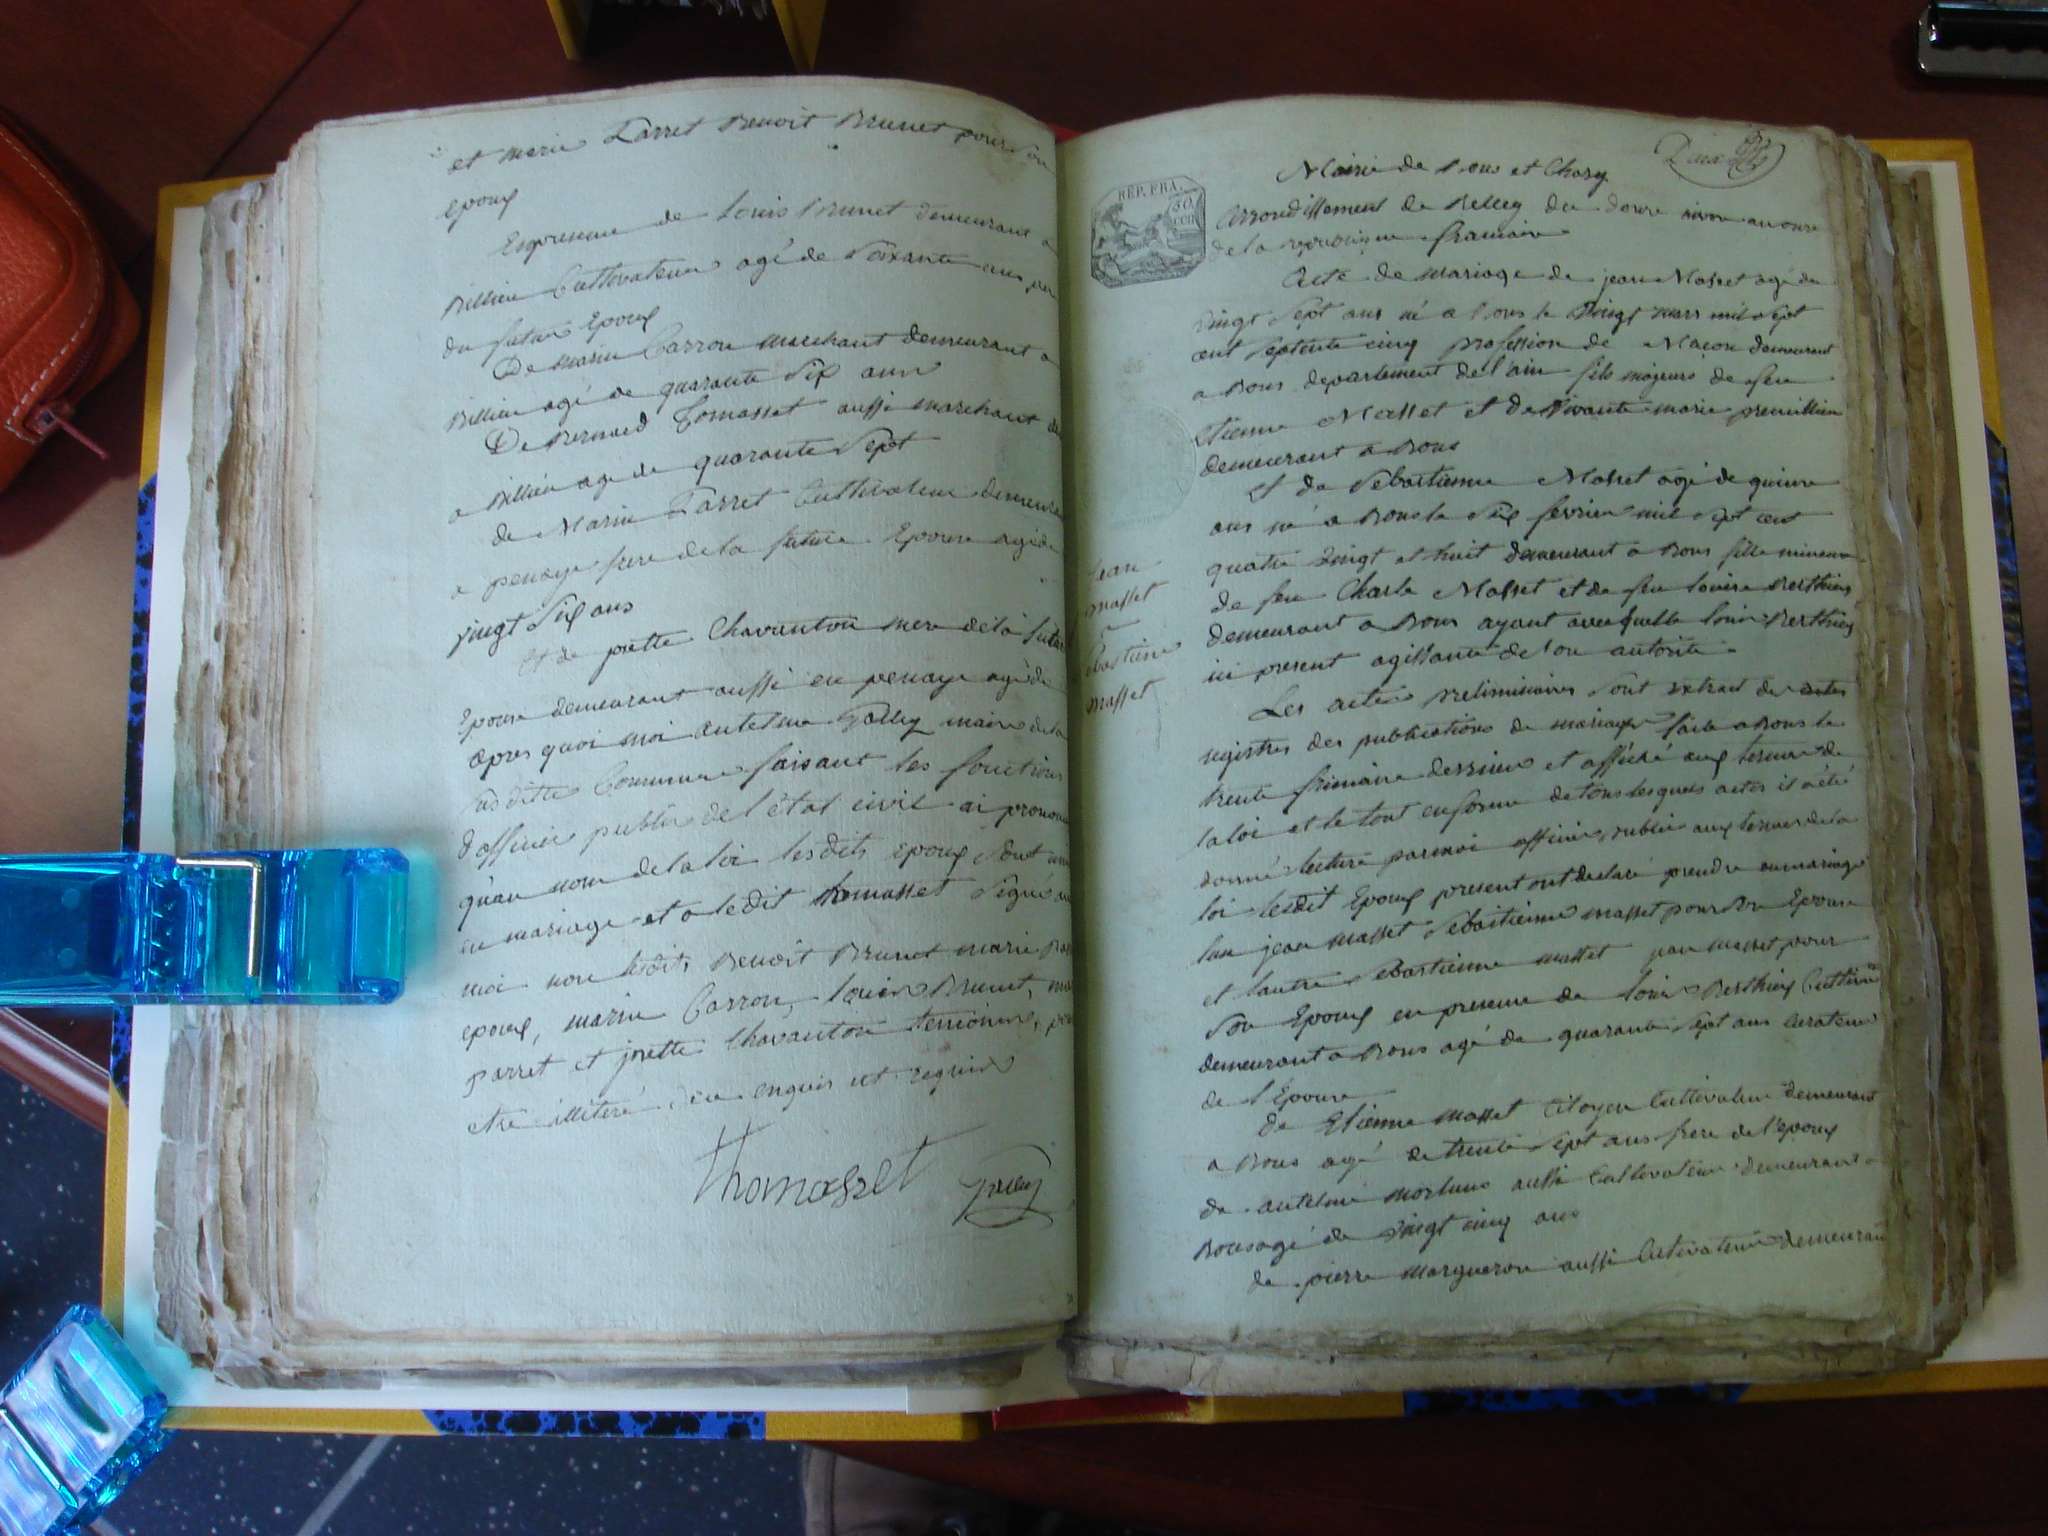 et marie Parret Benoit Brunet pour son
epoux
En presence de Louis Brunet demeurant a
Billieu Cultivateur agé de soixante ans, pere
du futur Epoux
De marin Carron marchant demeurant a
Billieu agé de quarante six ans
De Bernard Tomasset aussi marchant de
a Billieu age de quarante sept
de Marin Parret Cultivateur demeurant
a penaye frere de la future Epouse agé de
vingt six ans
Et de josette Chavanton mere de la future
Epouse demeurant aussi en penaye agé de
apres quoi moi antelme maire de la
sus ditte Commune faisant les fonctions
d'officier public de l'état civil ai prononcé
qu'au nom de la loi lesdits epoux sont unis
en mariage et a ledit thomasset signé avec
moi non lesdits Benoit Brunet marie
epoux, marin Carron, Louis Brunet,
parret et josette Chavanton temoins, pour
etre illiteré, de ce enquis et requis
thomasset
Mairie de Bons et Chazey
REP. FRA.
Arrondissement de Belley du douze nivose an onze
de la republique francaise
Acte de mariage de jean Masset agé de
vingt sept ans né a Bons le vingt mars mil sept
cent septente cinq profession de Macon demeurant
a Bons departement de l'ain fils majeur de feu
etienne Masset et de vivante marie premillieu
demeurant a Bons
Et de Sebastienne Masset agé de quinze
ans né a Bons le six fevrier mil sept cent
quatre vingt et huit demeurant a Bons fille mineure
de feu Charle Masset et de feu Louise Berthier
demeurant a Bons ayant avec quelle Louis Berthier
ici present agissante de son autorité
Jean
masset
et
ebastiene
masset
Les actes preliminaires sont extrait des
registres des publications de mariage faite a Bons le
trente frimaire dernier et affiché aux termes de
la loi et le tout en forme de tous lesquels actes il a été
donné lecture par moi officier public aux termes de la
loi lesdit Epoux present ont declaré prendre en mariage
lun jean masset Sebastienne masset pour son Epouse
et lautre Sebastienne masset jean masset pour
son Epoux en presence de Louis Berthier Cultivateur
demeurant a Bons agé de quarante sept ans curateur
de l'Epouse
de Etienne masset Citoyen Cultivateur demeurant
a Bons agé de trente sept ans frere de l'epoux
de antelme aussi Cultivateur demeurant a
Bons agé de vingt cinq ans
de pierre margueron aussi Cultivateur demeurant